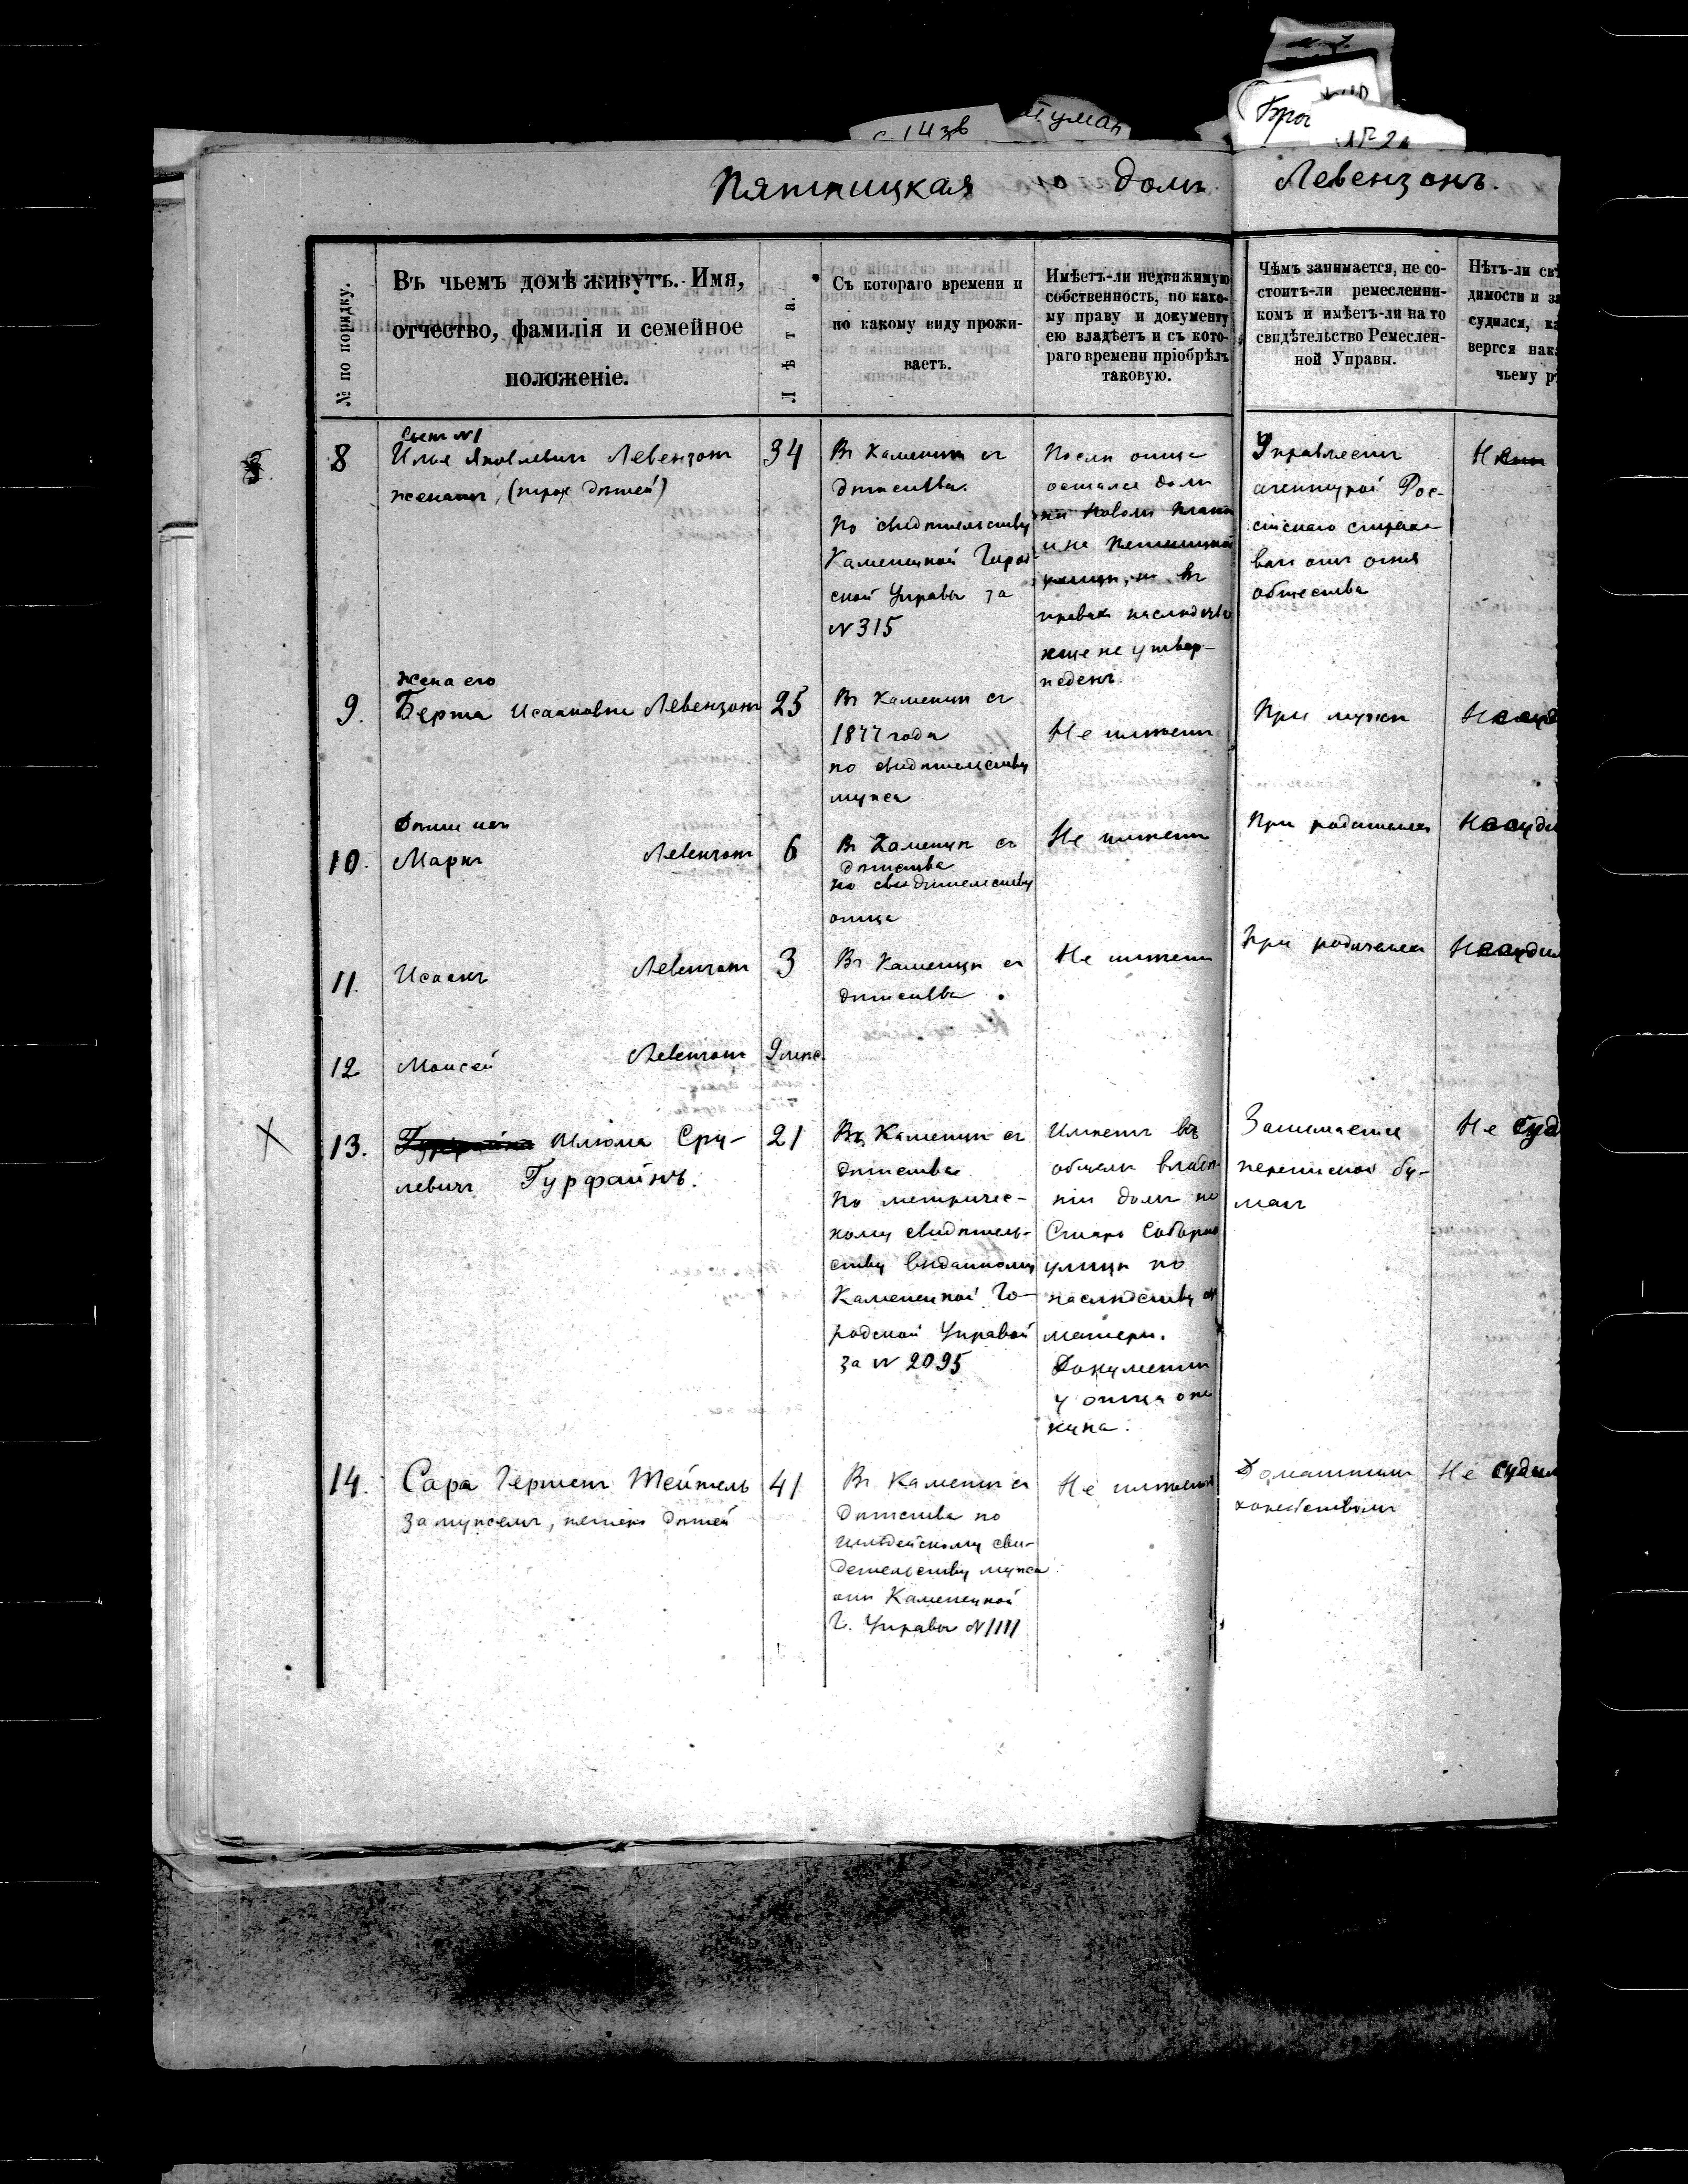 с. 143в
Туман
Брон
№ 2
Пятницкая ю домъ Левензонъ.
№ по порядку.
Въ чьемъ домѣ живутъ. Имя,
отчество, фамилія и семейное
положеніе.
Лѣта.
Съ котораго времени и
по какому виду прожи-
ваетъ.
Имѣетъ-ли недвижимую
собственность, по како-
му праву и документу
ею владѣетъ и съ кото-
раго времени пріобрѣлъ
таковую.
Чѣмъ занимается, не со-
стоитъ-ли ремесленни-
комъ и имѣетъ-ли на то
свидѣтельство Ремеслен-
ной Управы.
Нѣтъ-ли свѣ
димости и за
судился, ка
вергся нака
чьему рѣ
8
Илья Яковлевичъ Левензонъ
женатъ, (трох дѣтей)
34
Въ Каменцѣ съ
дѣтства.
по свидѣтельству
Каменецкой Город
ской Управы за
№ 315
Послѣ отца
остался домъ
на Новомъ Планѣ
и на Пятницкой
улицѣ, но въ
правах наслѣдства
еще не утвер-
жденъ.
Управляетъ
агентурой Рос-
сійскаго страхо
ван отъ огня
общества
9.
жена его
Берта Исааковна Левензонъ
25
Въ Каменцѣ съ
1877 года
по свидѣтельству
мужа
Не имѣетъ
При мужѣ
Не суд
10.
Дѣти ихъ
Маркъ Левензонъ
6
Въ Каменцѣ съ
дѣтства
по свидѣтельству
отца
Не имѣетъ
При родителях
Не суди
11.
Исаакъ Левензонъ
3
Въ Каменцѣ съ
дѣтства
Не имѣетъ
При родителях
Не судил
12
Моисей Левензонъ
9 мѣс.
13.
Шлома Сру-
левичъ Гурфайнъ.
21
Въ Каменцѣ съ
дѣтства
по метричес-
кому свидѣтель-
ству выданному
Каменецкой Го-
родской Управой
за № 2095
Имѣетъ въ
общемъ владѣ-
ніи домъ по
Старо Соборной
улицѣ по
наслѣдству от
матери.
Документы
у отца опе
куна.
Занимается
перепиской бу-
маг
Не суд
14.
Сара Гершен Тейтель
замужемъ, пятеро дѣтей
41
Въ Каменцѣ съ
дѣтства по
гильдейскому сви-
детельству мужа
отъ Каменецкой
Г. Управы № 1111
Не имѣетъ
Домашнимъ
хозяйствомъ
Не судил